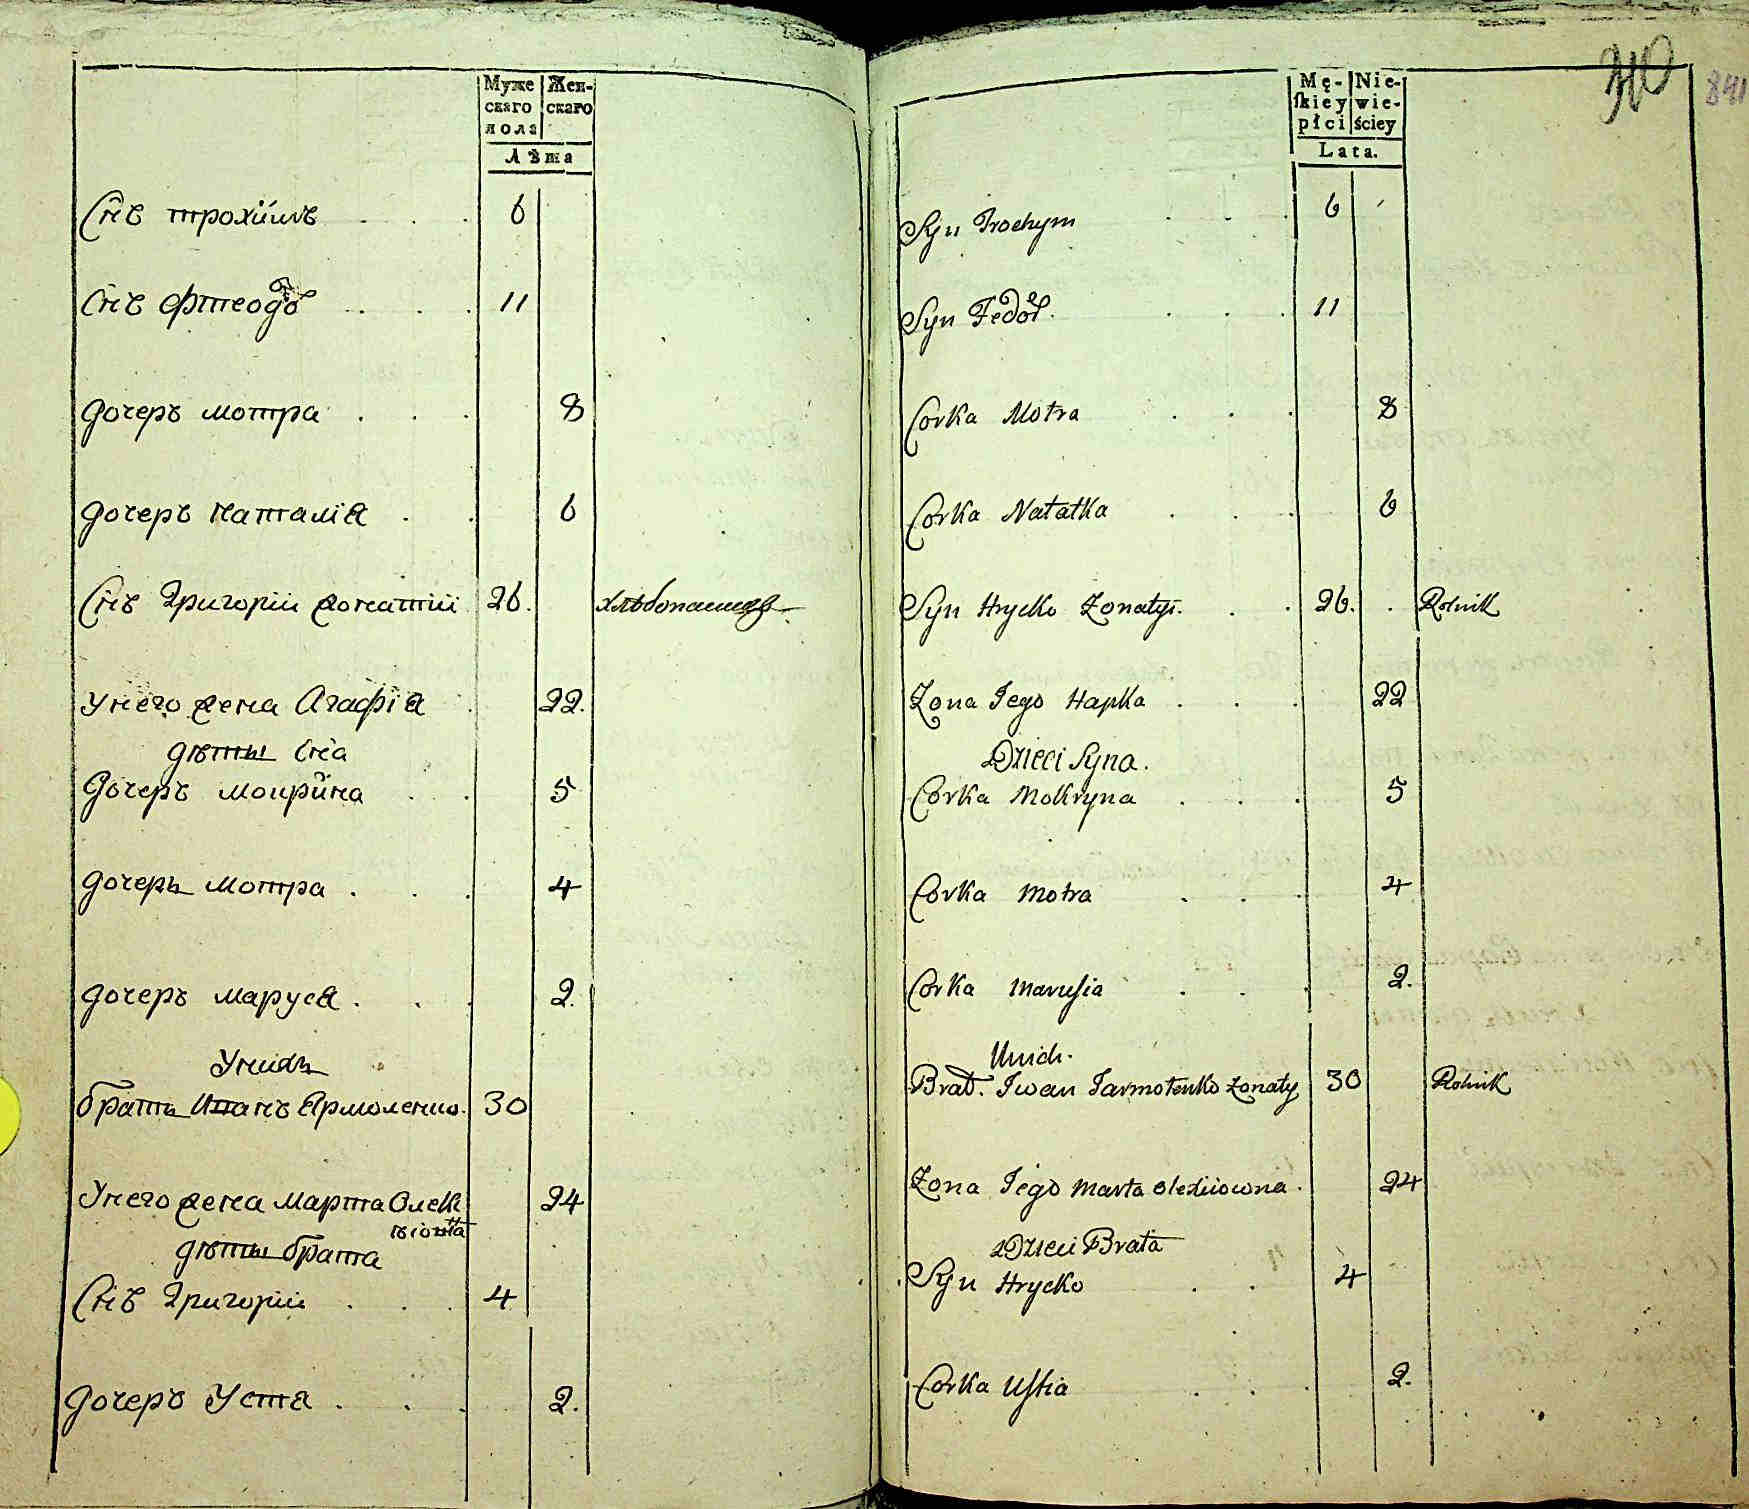 Муже
скаго
пола
Жен-
скаго
Лѣта
Сн҃ъ трохимъ 6
Сн҃ъ Фтеодоръ 11
дочеръ мотра 8
дочеръ наталія 6
Сн҃ъ Григорій жонатій 26. хлѣбопашецъ
У него жена Агафія 22.
дѣты сн҃а
Дочеръ мокрина 5
дочеръ мотра 4
дочеръ маруся 2.
У нихъ
братъ Иванъ Ярмоленко. 30
У него жена марта Олекс
дѣты брата
Сн҃ъ Григорій 4
дочеръ Устя 2.
310
841
Mę-
skiey
płci
Nie-
wie-
ściey
Lata.
Syn Trochym 6
Syn Fedor 11
Corka Motra 8
Corka Natalka 6
Syn Hrycko Żonaty. 26. Rolnik
Żona Jego Hapka 22
Dzieci Syna.
Corka Mokryna 5
Corka Motra 4
Corka Marusia 2.
U nich.
Brat. Iwan Jarmolenko żonaty 30 Rolnik
Żona Jego Marta 24
Dzieci Brata
Syn Hrycko 4
Corka Ustia 2.